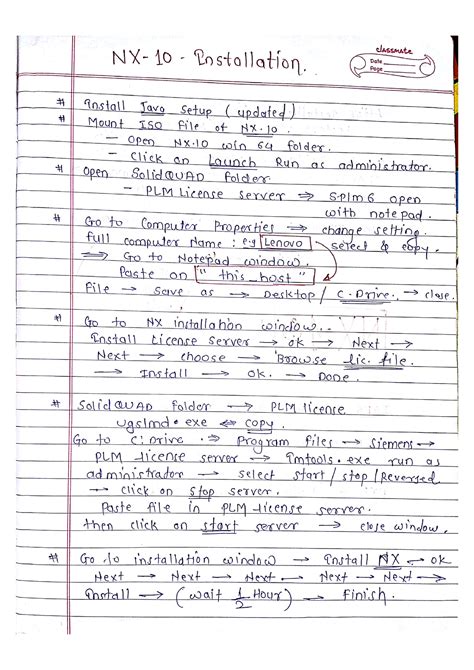 classmate
Date
Page
NX-10 - Installation.
# Install Java setup (updated)
# Mount ISO file of NX-10.
– Open NX-10 win 64 folder.
– Click on Launch Run as administrator.
# Open SolidQUAD folder
– PLM License server ⇒ SPlm6 open
with notepad.
# Go to Computer Properties ⇒ change setting.
full computer Name : e.g Lenovo select & copy.
⇒ Go to Notepad window.
Paste on "this_host"
File → Save as → Desktop / C-Drive. → close.
# Go to NX installation window..
Install License Server → ok → Next →
Next → choose → Browse lic. file.
→ Install → ok. → Done.
# SolidQUAD folder → PLM license
ugslmd.exe ⇐ copy.
Go to C:Drive ⇒ Program files → Siemens →
PLM license server → lmtools.exe run as
administrador → select start / stop / Reversed
→ click on stop server.
Paste file in PLM-license server.
then click on start server → close window.
# Go to installation window → Install NX → ok
Next → Next → Next → Next → Next →
Install → (wait 1/2 Hour) → finish.